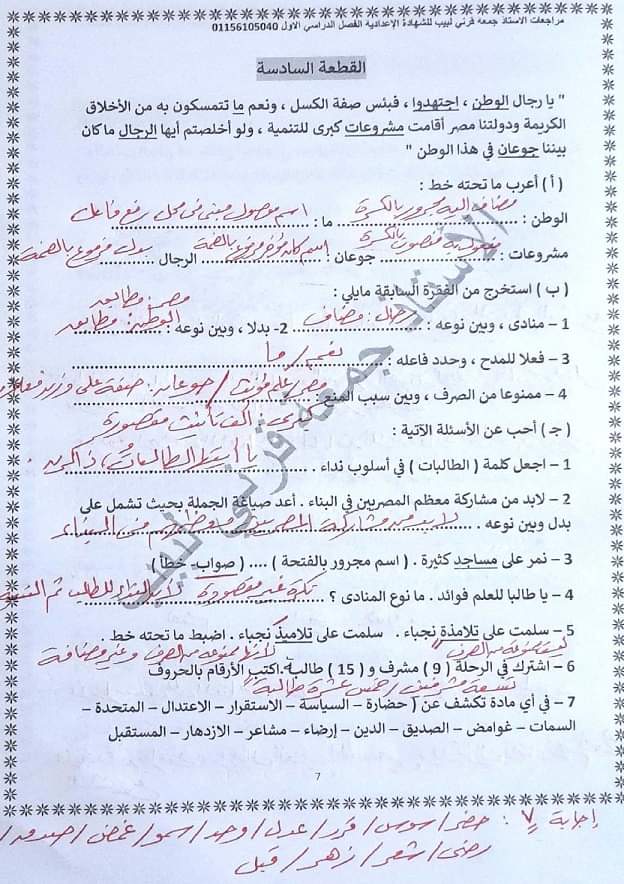 مراجعات الاستاذ جمعه قرني لبيب للشهادة الإعدادية الفصل الدراسي الاول 01156105040
القطعة السادسة
" يا رجال الوطن ، اجتهدوا ، فبئس صفة الكسل ، ونعم ما تتمسكون به من الأخلاق
الكريمة ودولتنا مصر أقامت مشروعات كبرى للتنمية ، ولو أخلصتم أيها الرجال ما كان
بيننا جوعان في هذا الوطن "
( أ ) أعرب ما تحته خط :
مضاف إليه مجرور بالكسرة اسم موصول مبنى فى محل رفع فاعل
الوطن : ............ ما : ............
مفعول به منصوب بالكسرة اسم كان مؤخر مرفوع بالضمة بدل مرفوع بالضمة
مشروعات : ............ جوعان : ............ الرجال ............
( ب ) استخرج من الفقرة السابقة مايلي :
مصر: مطابق
رجال : مضاف الوطن: مطابق
1 – منادى ، وبين نوعه : ............ 2- بدلا ، وبين نوعه : ............
نعم / ما
3 – فعلا للمدح ، وحدد فاعله : ............
مصر / علم مؤنث / جوعان : صفة على وزن فعلان
4 – ممنوعا من الصرف ، وبين سبب المنع : ............
كبرى : ألف تأنيث مقصورة
( جـ ) أحب عن الأسئلة الآتية :
يا أيتها الطالبات ذاكرن .
1 – اجعل كلمة ( الطالبات ) في أسلوب نداء . ............
2 – لابد من مشاركة معظم المصريين في البناء . أعد صياغة الجملة بحيث تشمل على
لابد من مشاركة المصريين معظمهم فى البناء
بدل وبين نوعه . ............
3 – نمر على مساجد كثيرة . ( اسم مجرور بالفتحة ) .... ( صواب- خطأ )
نكرة غير مقصودة
4 – يا طالبا للعلم فوائد . ما نوع المنادى ؟ ............
5 – سلمت على تلامذة نجباء . سلمت على تلاميذ نجباء . اضبط ما تحته خط .
ليست ممنوعة من الصرف لأنها ممنوعة من الصرف وغير مضافة
6 – اشترك في الرحلة ( 9 ) مشرف و ( 15 ) طالبة . اكتب الأرقام بالحروف
تسعة مشرفين / خمس عشرة طالبة
7 – في أي مادة تكشف عن ( حضارة – السياسة – الاستقرار – الاعتدال – المتحدة –
السمات – غوامض – الصديق – الدين – إرضاء – مشاعر – الازدهار – المستقبل
7
إجابة 7 : حضر / سوس / قرر / عدل / وحد / سمو / غمض / صدق /
رضى / شعر / زهر / قبل
الاستاذ جمعة قرني لبيب